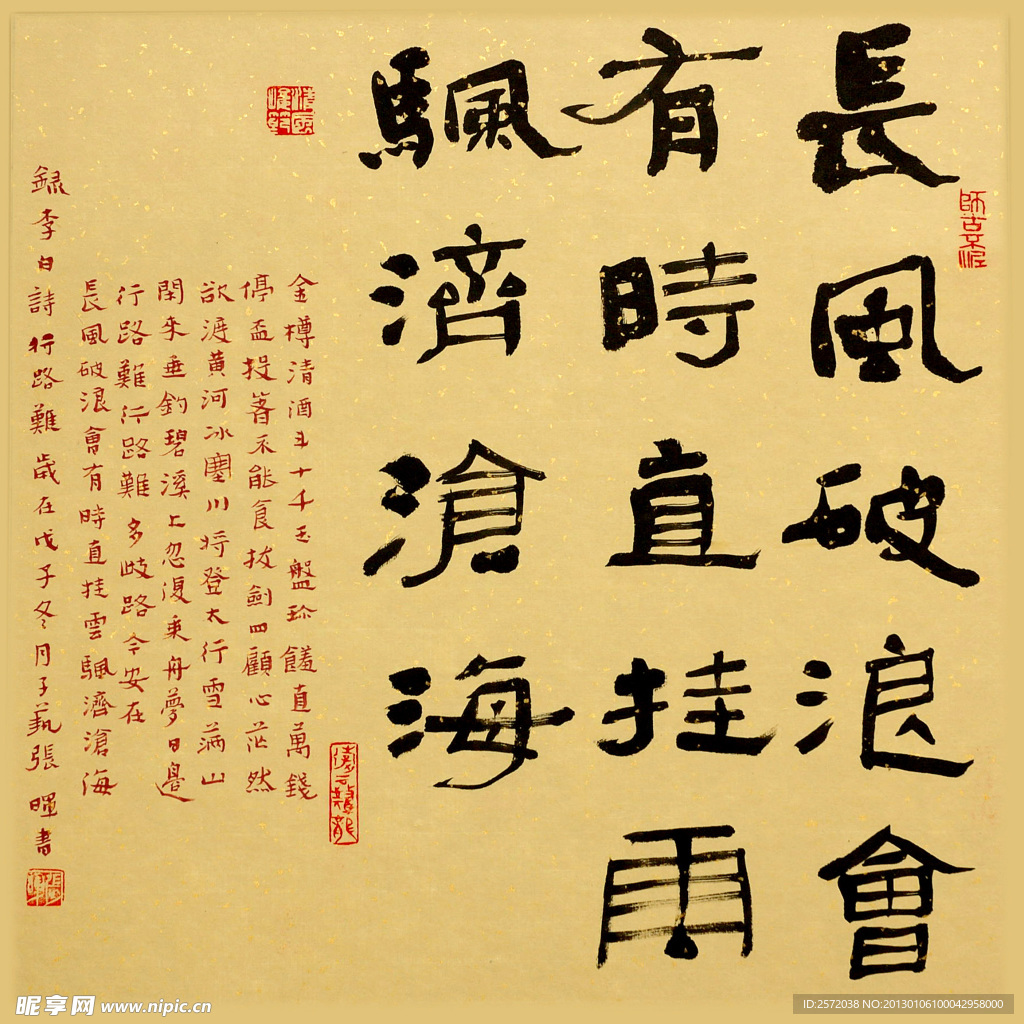 長風破浪會
有時直挂雨
颿濟滄海
金樽清酒斗十千玉盤珍饈直萬錢
停盃投箸不能食拔劍四顧心茫然
欲渡黄河冰塞川將登太行雪滿山
閑來垂釣碧溪上忽復乘舟夢日邊
行路難行路難多歧路今安在
長風破浪會有時直挂雲颿濟滄海
録李白詩行路難歲在戊子冬月子蓺張暉書
師古不泥
張暉
昵享网 www.nipic.cn
ID:2572038 NO:20130106100042958000